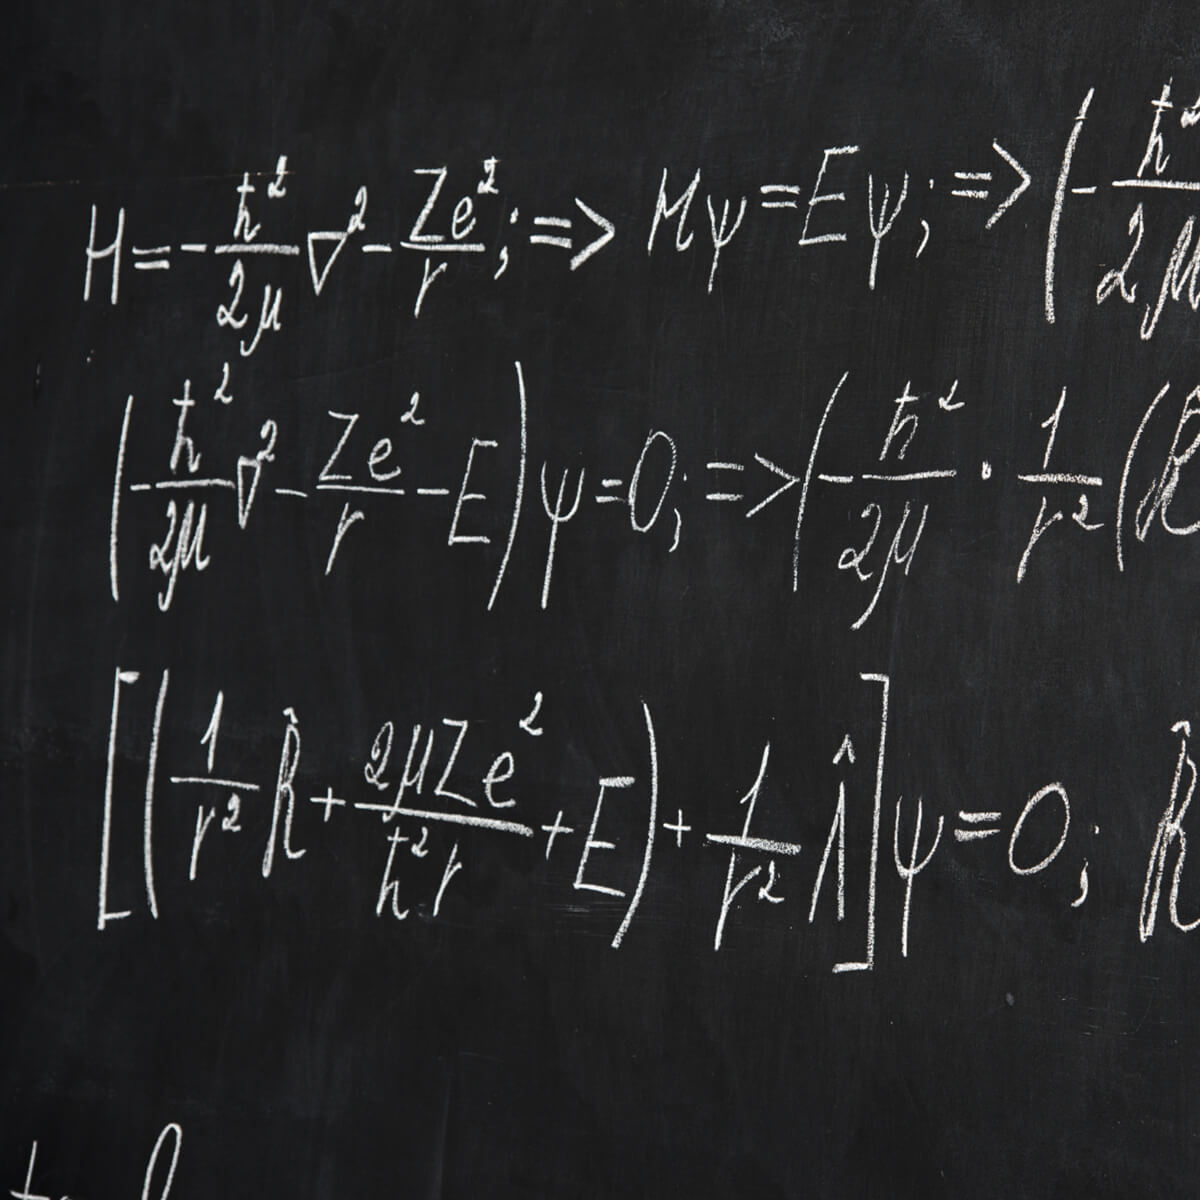 H = -ħ²/2μ ∇² - Ze²/r ; => Hψ = Eψ ; => (-ħ²/2μ
(-ħ²/2μ ∇² - Ze²/r - E)ψ = 0 ; => (-ħ²/2μ · 1/r² (R̂
[(1/r² R̂ + 2μZe²/ħ²r + E) + 1/r² Λ̂]ψ = 0 ; R̂